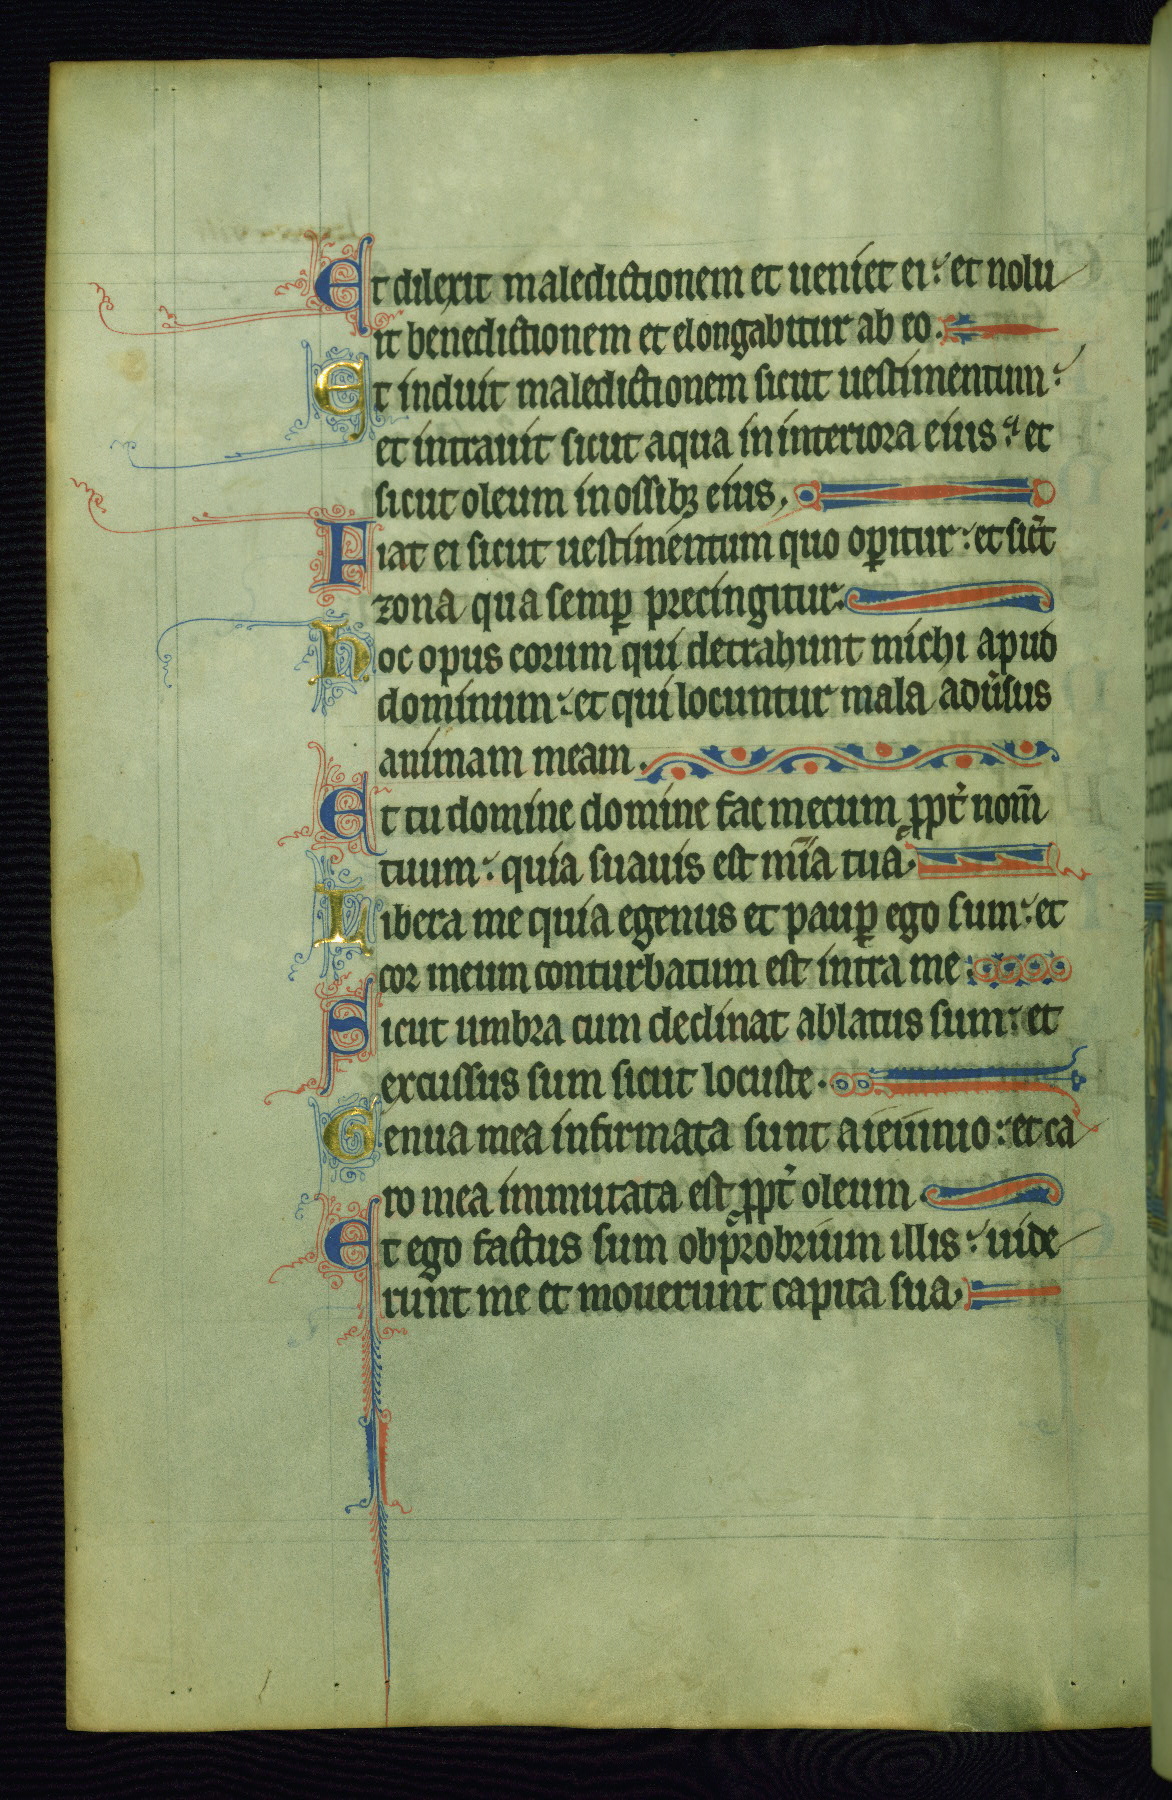 Et dilexit maledictionem et ueniet ei: et nolu
it benedictionem et elongabitur ab eo.
Et induit maledictionem sicut uestimentum:
et intrauit sicut aqua in interiora eius: et
sicut oleum in ossibꝫ eius.
Fiat ei sicut uestimentum quo oꝑitur: et sic̄t
zona qua semꝑ precingitur.
hoc opus eorum qui detrahunt michi apud
dominum: et qui locuntur mala adu̾sus
animam meam.
Et tu domine domine fac mecum ꝓpt̾ nom̄
tuum: quia suauis est mīa tua.
Libera me quia egenus et pauꝑ ego sum: et
cor meum conturbatum est intra me:
Sicut umbra cum declinat ablatus sum: et
excussus sum sicut locuste.
Genua mea infirmata sunt a ieiunio: et ca
ro mea immutata est ꝓpt̾ oleum.
Et ego factus sum obprobrium illis: uide
runt me et mouerunt capita sua.